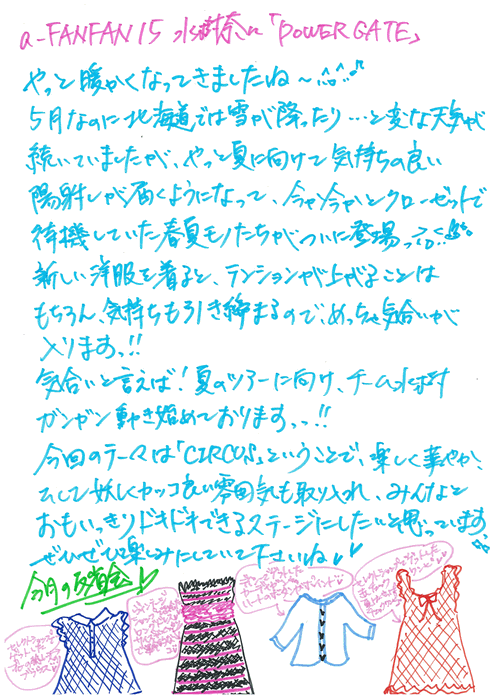 a-FANFAN 15 水樹奈々「POWER GATE」
やっと暖かくなってきましたね〜
5月なのに北海道では雪が降ったり…と変な天気が
続いていましたが、やっと夏に向けて気持ちの良い
陽射しが届くようになって、今か今かとクローゼットで
待機していた春夏モノたちがついに登場っ
新しい洋服を着ると、テンションが上がることは
もちろん、気持ちも引き締まるので、めっちゃ気合いが
入りますっ!!
気合いと言えば!夏のツアーに向け、チーム水樹
ガンガン動き始めております、、っ!!
今回のテーマは「CIRCUS」ということで、楽しく華やか、
そして妖しくカッコ良い雰囲気も取り入れ、みんなと
おもいっきりドキドキできるステージにしたいと思っています
ぜひぜひ楽しみにしていて下さいね
今月の反省会
セレクトショップで
ゲットした